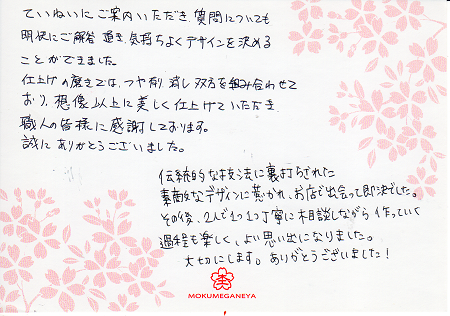 ていねいにご案内いただき、質問についても
明快にご解答頂き、気持ちよくデザインを決める
ことができました。
仕上げの磨きでは、つや有り、消し双方を組み合わせて
おり、想像以上に美しく仕上げていただき、
職人の皆様に感謝しております。
誠にありがとうございました。
伝統的な技法に裏打ちされた
素敵なデザインに惹かれ、お店で出会って即決でした。
その後、2人で1つ1つ丁寧に相談しながら作っていく
過程も楽しく、よい思い出になりました。
大切にします。ありがとうございました!
MOKUMEGANEYA